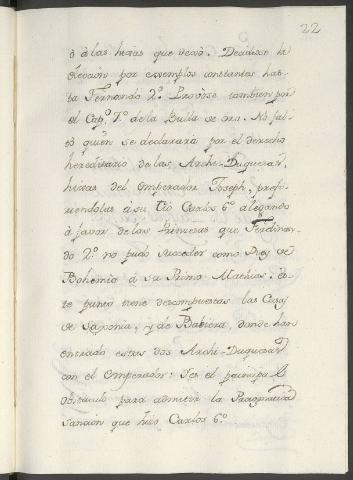 22
ò à las hixas que dexò. Deduxose la
eleccion por exemplos constantes has-
ta Fernando 2.º Provòse tambien por
el Cap.º 7.º de la Bulla de oro. No fal-
tò quien se declararà por el derecho
hereditario de las Archi-Duquesas,
hixas del emperador Joseph, prefi-
riendolas à su tio Carlos 6.º alegando
à favor de las Primeras que Ferdinan-
do 2.º no pudo suceder como Rey de
Bohemia à su Primo Mathias. es-
te punto tiene descompuestas las Casas
de Saxonia, y de Babiera, donde han
entrado estas dos Archi-Duquesas
con el emperador: Y es el principal
obstaculo para admitir la Pragmatica
Sancion que hizo Carlos 6.º